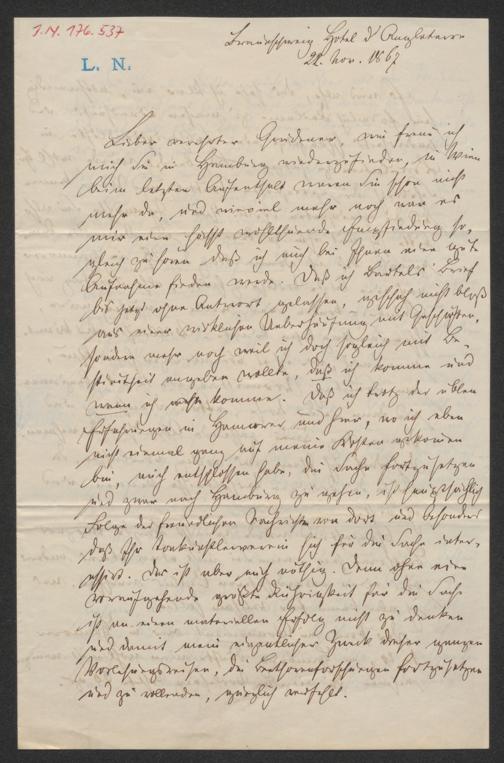 I.N. 176.537
L. N.
Braunschweig Hotel d'Angleterre
22. Nov. 1867
Lieber verehrter Grädener, wie freue ich
mich Sie in Hamburg wiederzufinden, in Wien
beim letzten Aufenthalt waren Sie schon nicht
mehr da, und wieviel mehr noch war es
mir eine höchst wohlthuende Empfindung so-
gleich zu hören daß ich auch bei Ihnen eine gute
Aufnahme finden werde. Daß ich Bartels' Brief
bis jetzt ohne Antwort gelassen, geschah nicht bloß
aus einer wirklichen Ueberhäufung mit Geschäften,
sondern mehr noch weil ich doch sogleich mit Be-
stimmtheit angeben wollte, daß ich komme und
wann ich komme. Daß ich trotz der üblen
Erfahrungen in Hannover und hier, wo ich eben
nicht einmal ganz auf meine Kosten gekommen
bin, mich entschlossen habe, die Sache fortzusetzen
und zwar nach Hamburg zu gehen, ist hauptsächlich
Folge der freundlichen Nachrichten von dort und besonders
daß Ihr Tonkünstlerverein sich für die Sache inter-
essirt. Das ist aber auch nöthig. Denn ohne eine
voraufgehende größte Rührigkeit für die Sache
ist an einen materiellen Erfolg nicht zu denken
und damit mein eigentlicher Zweck dieser ganzen
Vorlesungsreisen, die Beethovenforschungen fortzusetzen
und zu vollenden, gänzlich verfehlt.